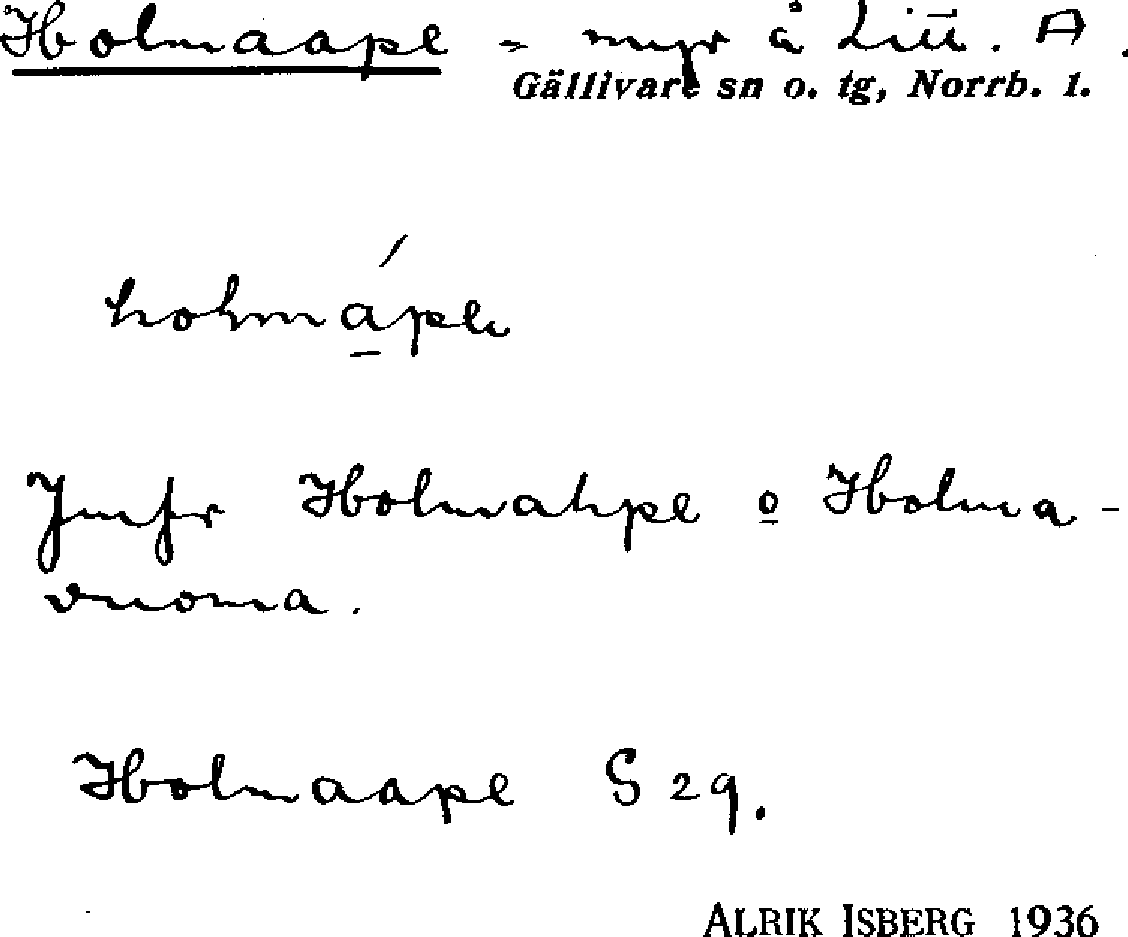 Holmaape = myr å Litt. A.
Gällivare sn o. tg, Norrb. l.
holmápe
Jmfr Holmahpe o Holma-
vuoma.
Holmaape S 29.
ALRIK ISBERG 1936